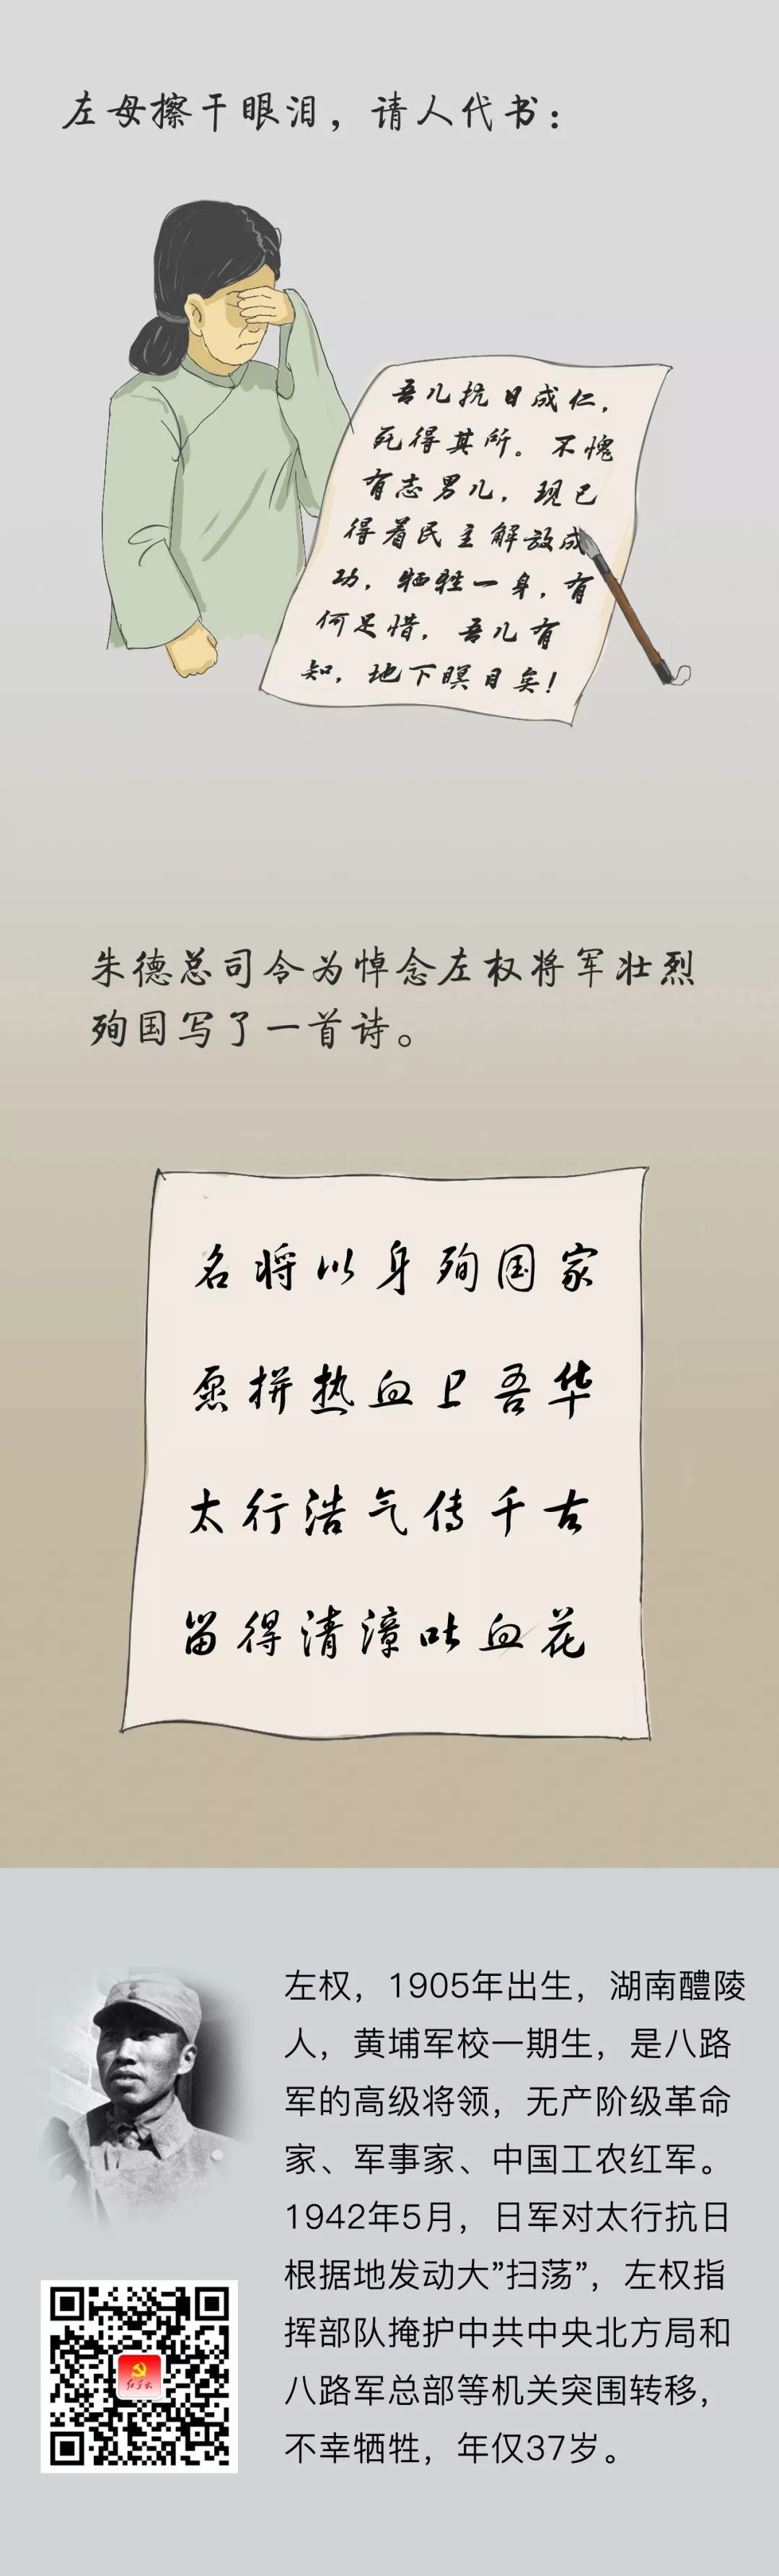 左母擦干眼泪，请人代书：
吾儿抗日成仁，
死得其所。不愧
有志男儿，现已
得着民主解放成
功，牺牲一身，有
何足惜，吾儿有
知，地下瞑目矣！
朱德总司令为悼念左权将军壮烈
殉国写了一首诗。
名将以身殉国家
愿拼热血卫吾华
太行浩气传千古
留得清漳吐血花
左权，1905年出生，湖南醴陵
人，黄埔军校一期生，是八路
军的高级将领，无产阶级革命
家、军事家、中国工农红军。
1942年5月，日军对太行抗日
根据地发动大”扫荡”，左权指
挥部队掩护中共中央北方局和
八路军总部等机关突围转移，
不幸牺牲，年仅37岁。